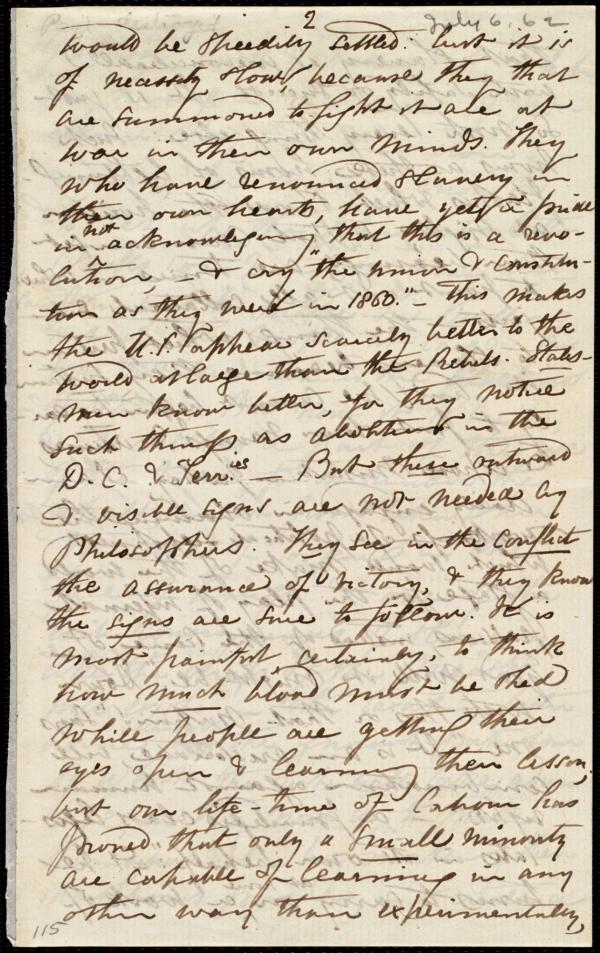 2
July 6. 62
would be speedily settled. but it is
of necessity slow, because they that
are summoned to fight it are at
war in their own minds. They
who have renounced slavery in
their own hearts, have yet a pride
in not acknowledging that this is a revo-
lution, – & cry "the union & constitu-
tion as they were in 1860." – This makes
the U.S. appear scarcely better to the
world at large than the Rebels. States-
men know better, for they notice
such things as abolition in the
D.C. & Terr.ies – But these outward
& visible signs are not needed by
Philosophers. They see in the conflict
the assurance of victory, & they know
the signs are sure to follow. It is
most painful, certainly, to think
how much blood must be shed
while people are getting their
eyes open & learning their lesson,
but our life-time of labour has
proved that only a small minority
are capable of learning in any
other way than experimentally,
115